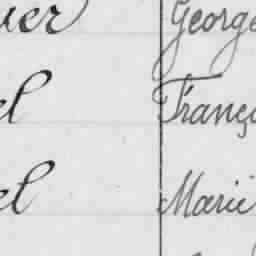 uer George
el Franço
el Marie